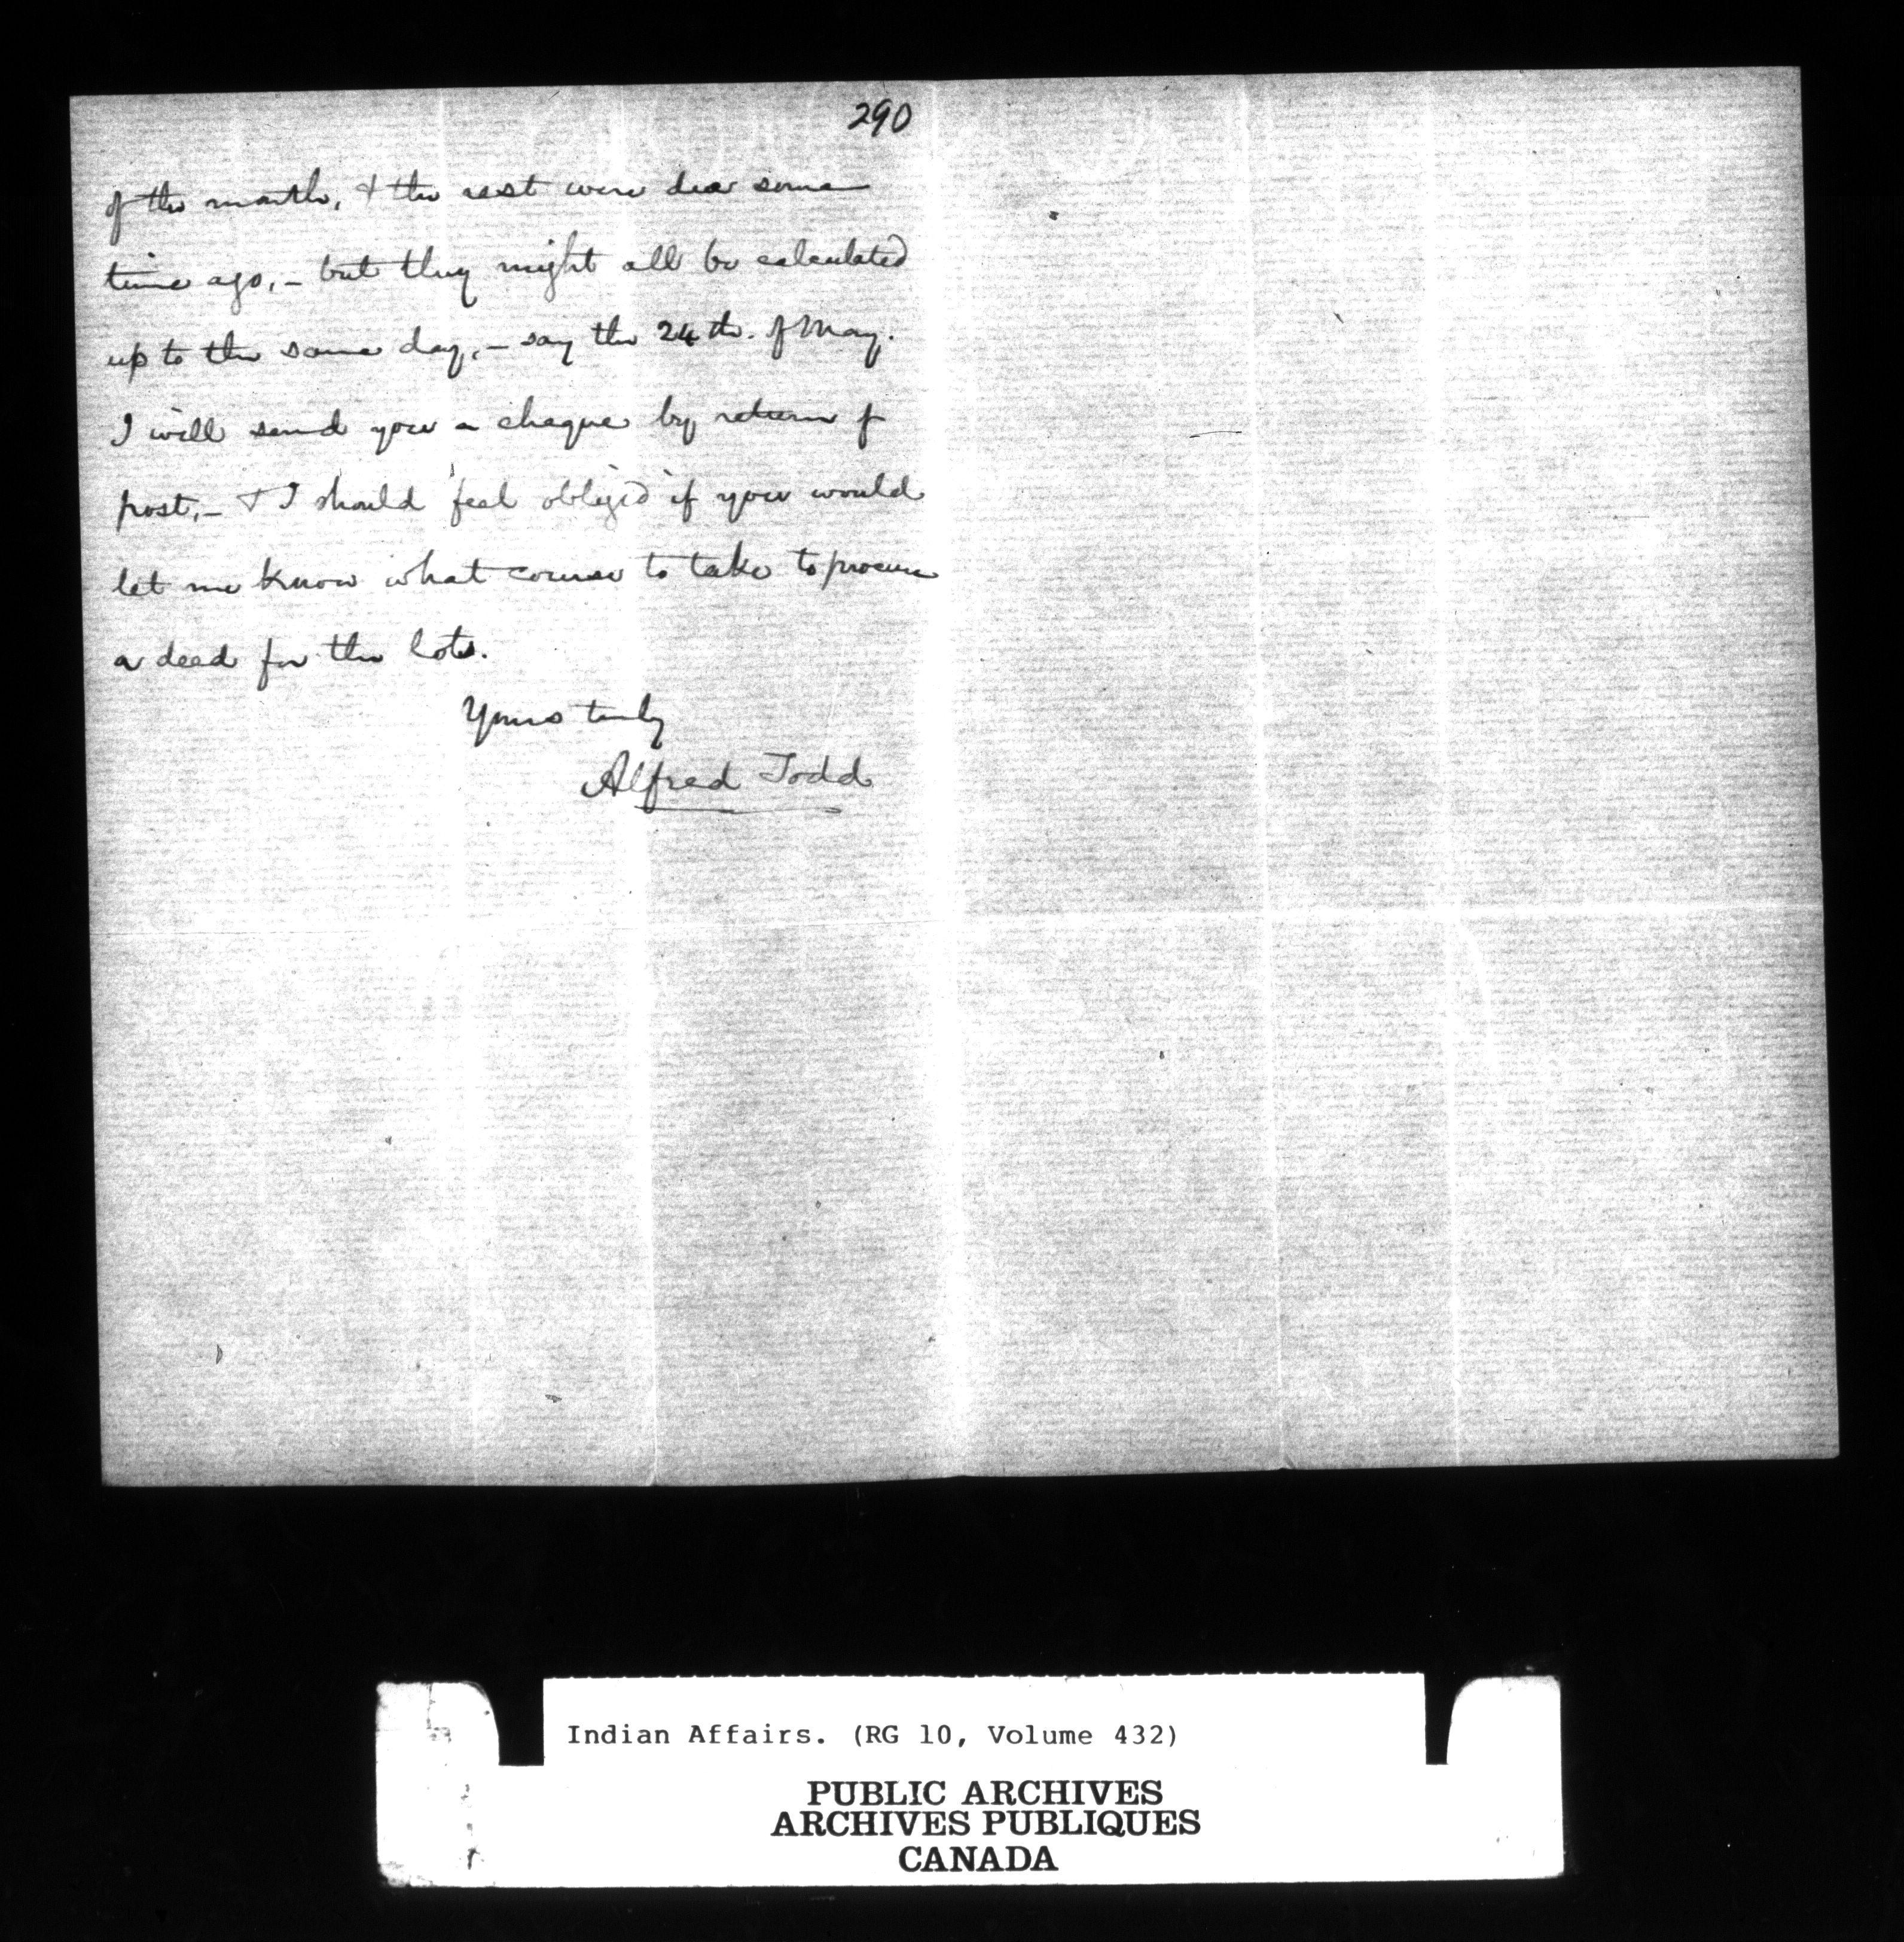 290
of the month, & the rest were due some
time ago, – but they might all be calculated
up to the same day, – say the 24th. of May.
I will send you a cheque by return of
post, – & I should feel obliged if you would
let me know what course to take to procure
a deed for the lots.
Yours truly
Alfred Todd
Indian Affairs. (RG 10, Volume 432)
PUBLIC ARCHIVES
ARCHIVES PUBLIQUES
CANADA